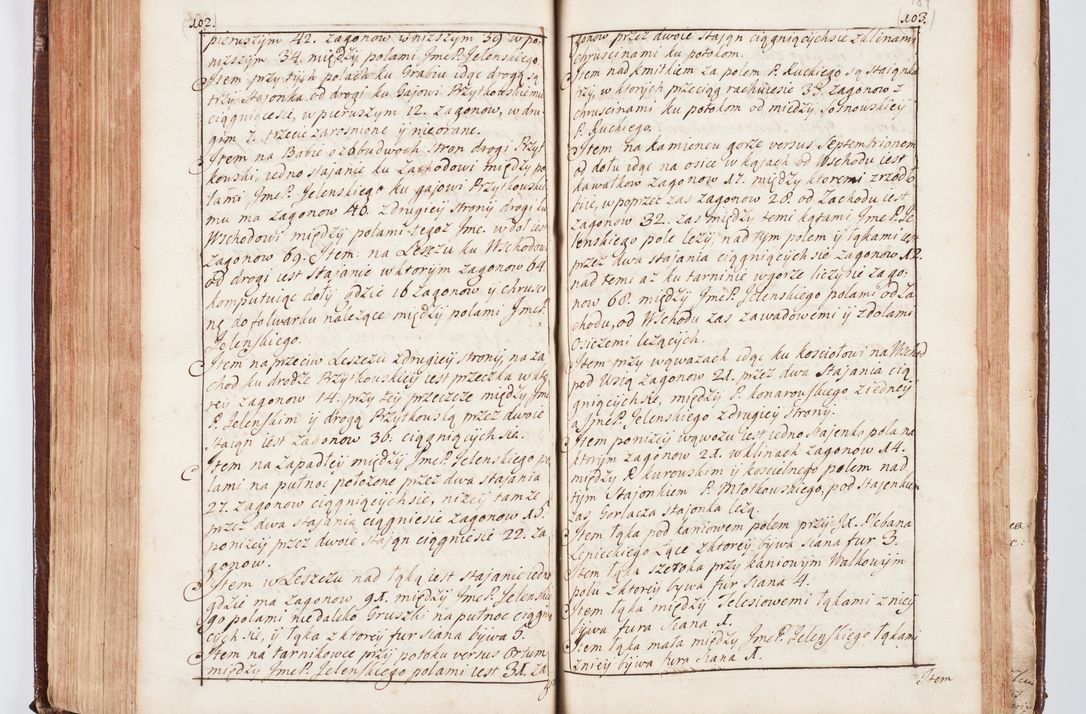 102.
pieruszym 42. zagonow wniższym 39 w po
niższym 34. między polami JmcP. Jelenskiego.
Item przy tych polach ku Grabiu idąc drogą są
trzy Stajonka od drogi ku Gajowi Brzytkowskiemu
ciągniącesie, w pieruszym 12. zagonow, w dru
gim 7. trzecie zarosnione y nieorane.
Item na Babie oż obudwoch stron drogi Przyt
kowski, iedno stajanie ku Zachodowi między po
lami JmcP. Jelenskiego ku gajowi Przytkowskie
mu ma zagonow 40. z drugiey strony drogi ku
Wschodowi między polami tegoż Jmc. w dol iest
zagonow 69. Item na Leszżu ku Wschodowi
od drogi iest Stajanie w ktorym zagonow 64.
komputuiąc doły gdzie 16 zagonow y chrusci
nę do folwarku należące między polami JmcP.
Jelenskiego.
Item naprzeciw Leszeżu zdrugiey strony, na za
chod ku drodze Brzytkowskiey iest przeczka w kto
rey zagonow 14. przy tey przeczce między Jmc
P. Jelenskim y drogą Przytkowską przez dwoie
staiąn iest zagonow 36. ciągniącychsie.
Item na Zapadley między JmcP. Jelenskiego po
lami na pułnoc położone przez dwa stajania
27. zagonow ciągniącychsie, niżey tamże
przez dwa stajania ciągniesie zagonow 15.
poniżey przez dwoie stająn ciągniesie 22. za
gonow.
Item w Leszeżu nad łąką iest stajanie iedno
gdzie ma zagonow 91. między JmcP. Jelenskie
go polami niedaleko Gruszki na pułnoc ciągnią
cychsie, y łąka z ktorey fur siana bywa 5.
Item na tarnikowce przy potoku versus Ortum
między JmcP. Jelenskiego polami iest 31. za
103.
gonow przez dwoie stająn ciągniącychsie zalinami
chruscinami ku potokom.
Item nad kmitkiem za polem P. Ruckiego są staiąnka
trzy, w ktorych przeciąg rachuiesie 33. zagonow z
chruscinami ku potokom od miedzy Sosnowskiey
P. Kuckiego.
Item na kamiencu gorze versus Septemtrionem
od dołu idąc na osice w kąjach od Wschodu iest
kawałkow zagonow 17. między ktoremi zrzodło
bire, w poprzez zas zagonow 28. od Zachodu iest
zagonow 32. zas między temi kątami JmcP. Je
lenskiego pole leży, nad tym polem y łąkami iest
przez dwa stajania ciągniącychsie zagonow 12.
nad temi aż ku tarninie wgorze liczbie zago:
now 68. między JmcP. Jelenskiego polami od Za
chodu, od Wschodu zas zawadowemi y zdolami
Osiczemi leżących.
Item przy wąwazach idąc ku kosciołowi na Wschod
pod Wsią zagonow 21. przez dwa Stajania cią
gniącychsie, między P. konarowskiego ziedney
a JmcP. Jelenskiego z drugiey strony.
Item poniżey wąwozu iest iedno Stajenko pola na
ktorym zagonow 21. wklinach zagonow 14.
między P. kurowskim y koscielnego polem nad
tym Stajonkiem P. Młotkowskiego, pod stajenkiem
zas Gorlacza stajonka leżą.
Item łąka pod kaniowem polem przy JX. Plebana
Lenieckiego łące z ktorey bywa siana fur 3.
Item łąka szeroka przy kaniowym Walkowym
polu z ktorey bywa fur Siana 4.
Item łąka między Jelesiowemi łąkami z niey
bywa fura Siana 1.
Item łąka mała między JmcP. Jelenskiego łąkam
z niey bywa fura siana 1.
Item